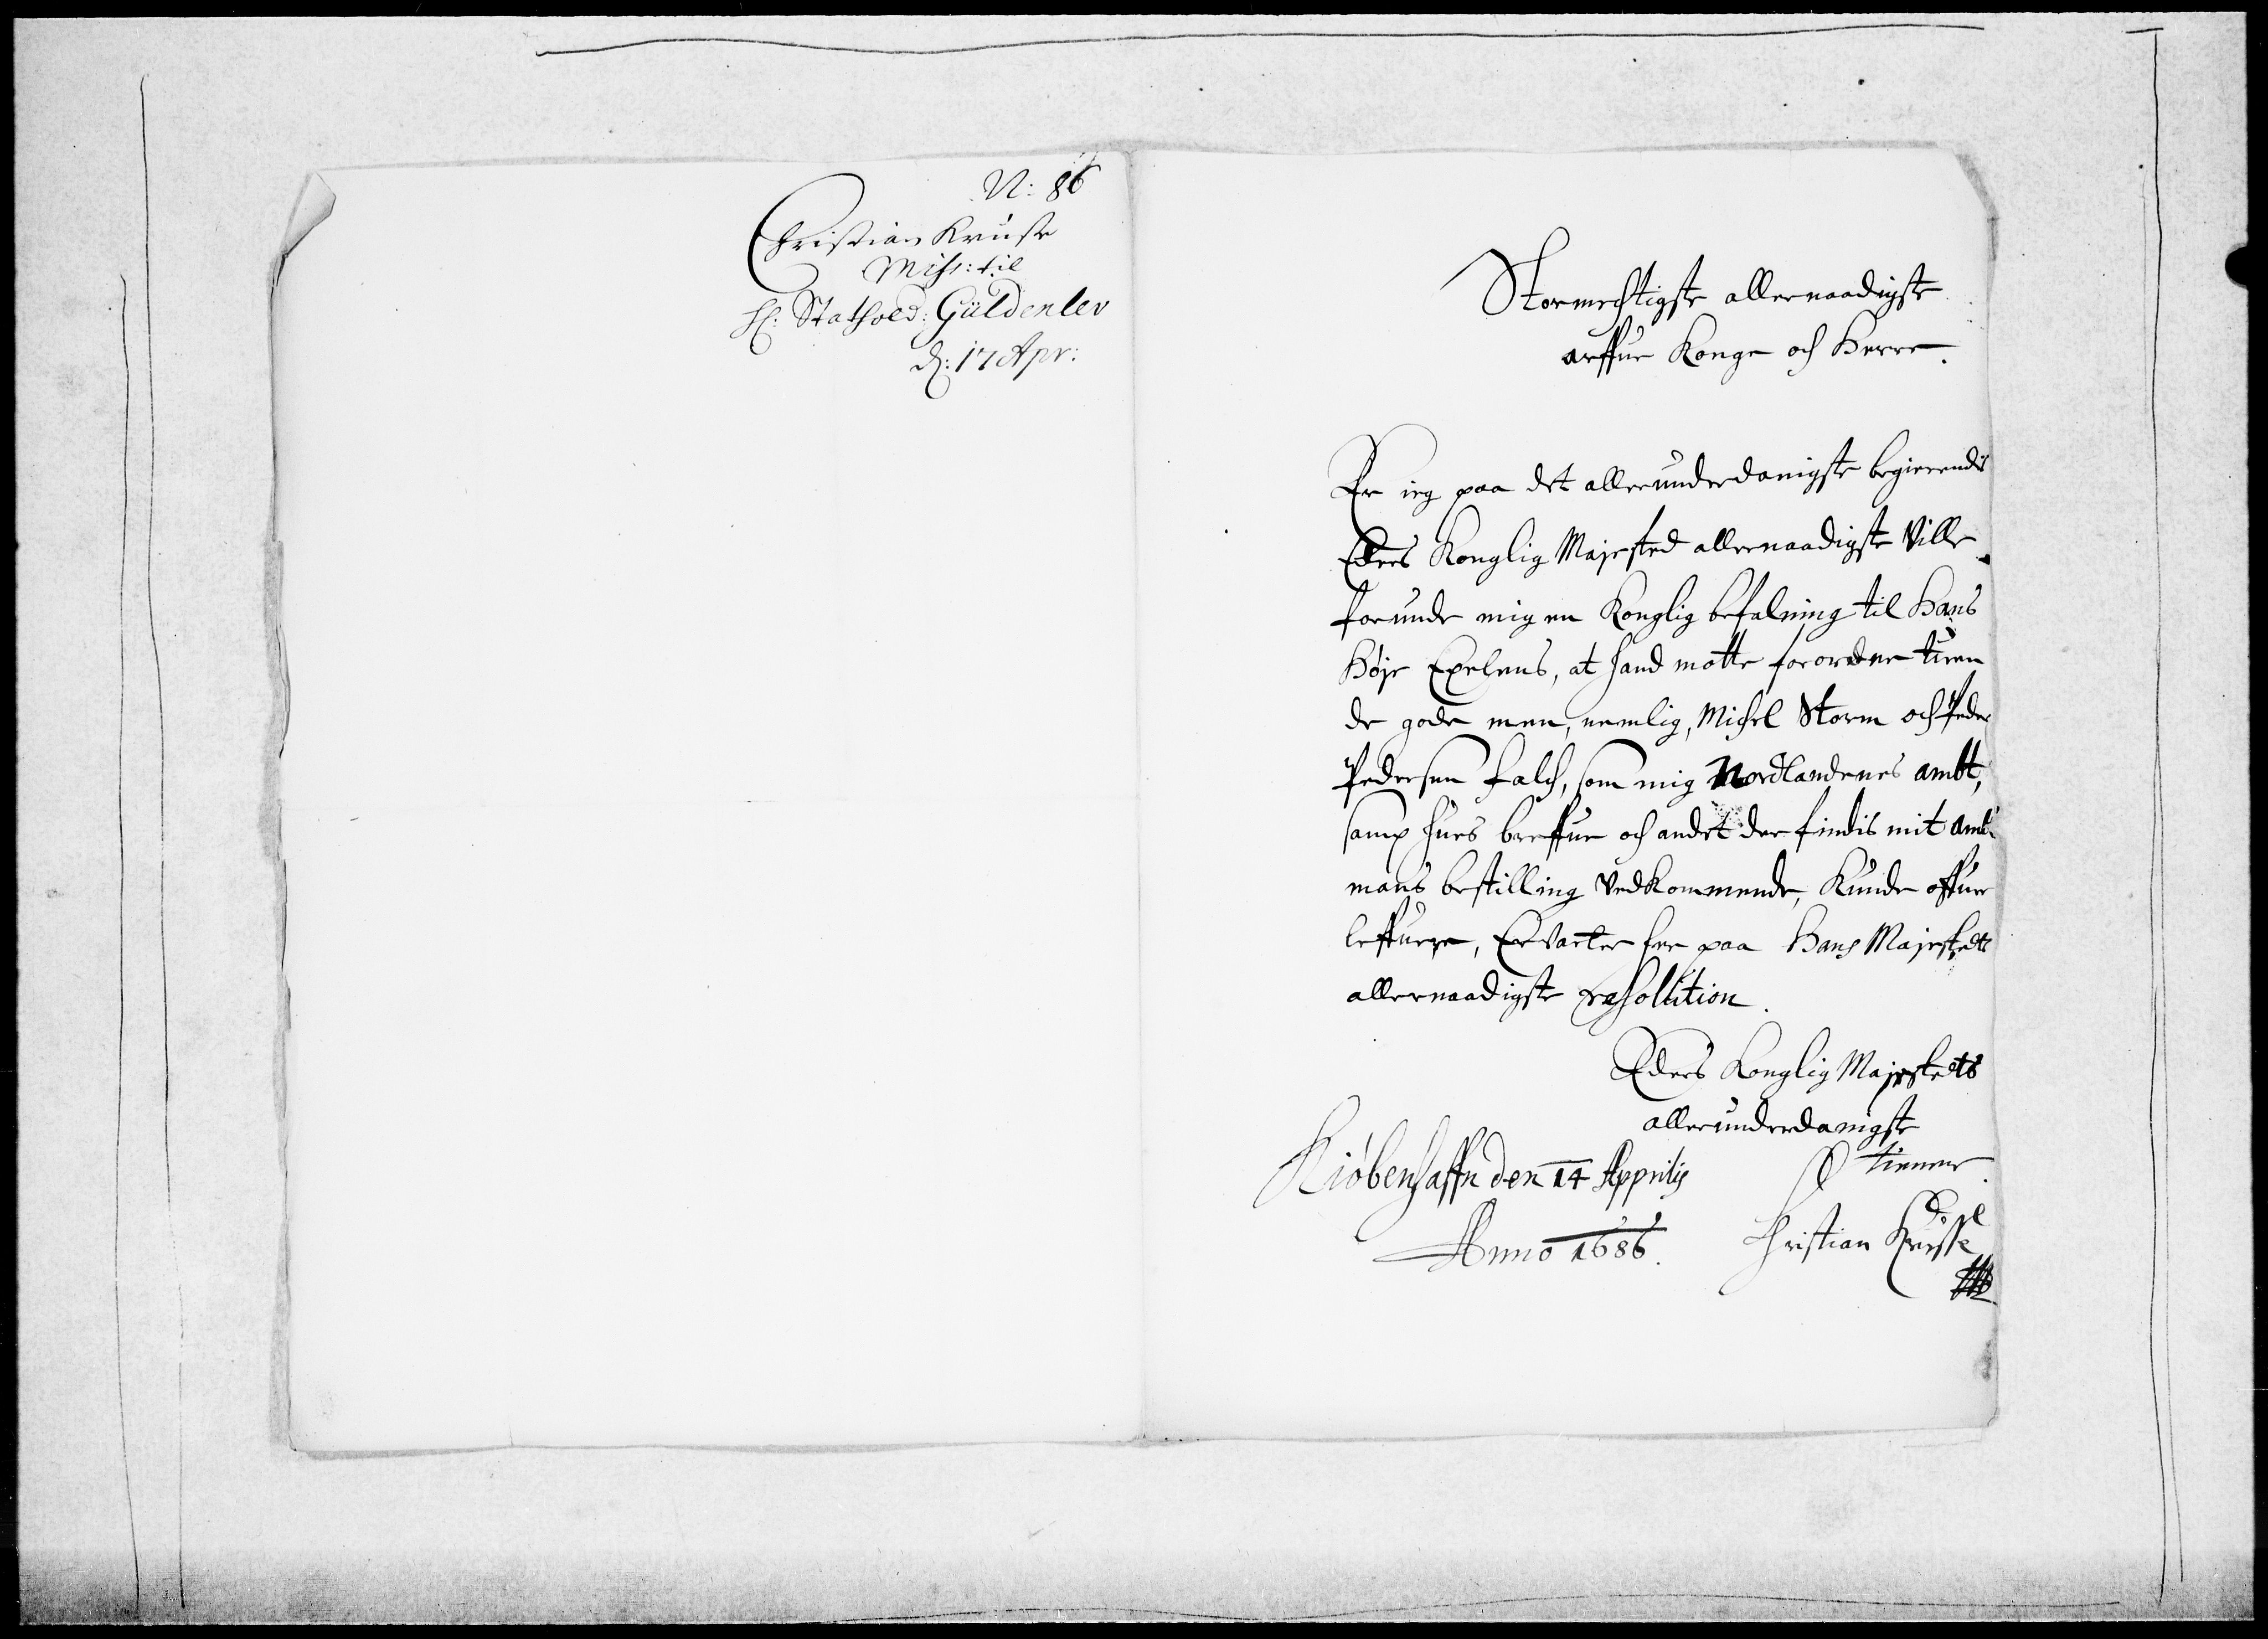 N: 86
Christian Kruse
Miss: til
H: Stathold: Güldenlev
d: 17 Apr:
Stormechtigste allernaadigste
arffue Konge och Herre.
Er ieg paa det allerunderdanigste begierendis
Eders Konglig Majested allernaadigste Ville
forunde mig en Konglig befalning til Hans
Høje Exelens, at hand motte forordne tuen
de gode men, nemlig, Michel Storm och Peder
Pedersen falch, som mig Nordlandenes ambt,
samp huis breffue och andet der findis mit ambt
mans bestilling vedkommende, Kunde offuer
leffuere, Ervarter her paa Hans Majestets
allernaadigste resolution.
Eders Konglig Majestets
allerunderdanigste
tienner
Kiøbenhaffn den 14 Apprilis
Anno 1686.
Christian Krusse